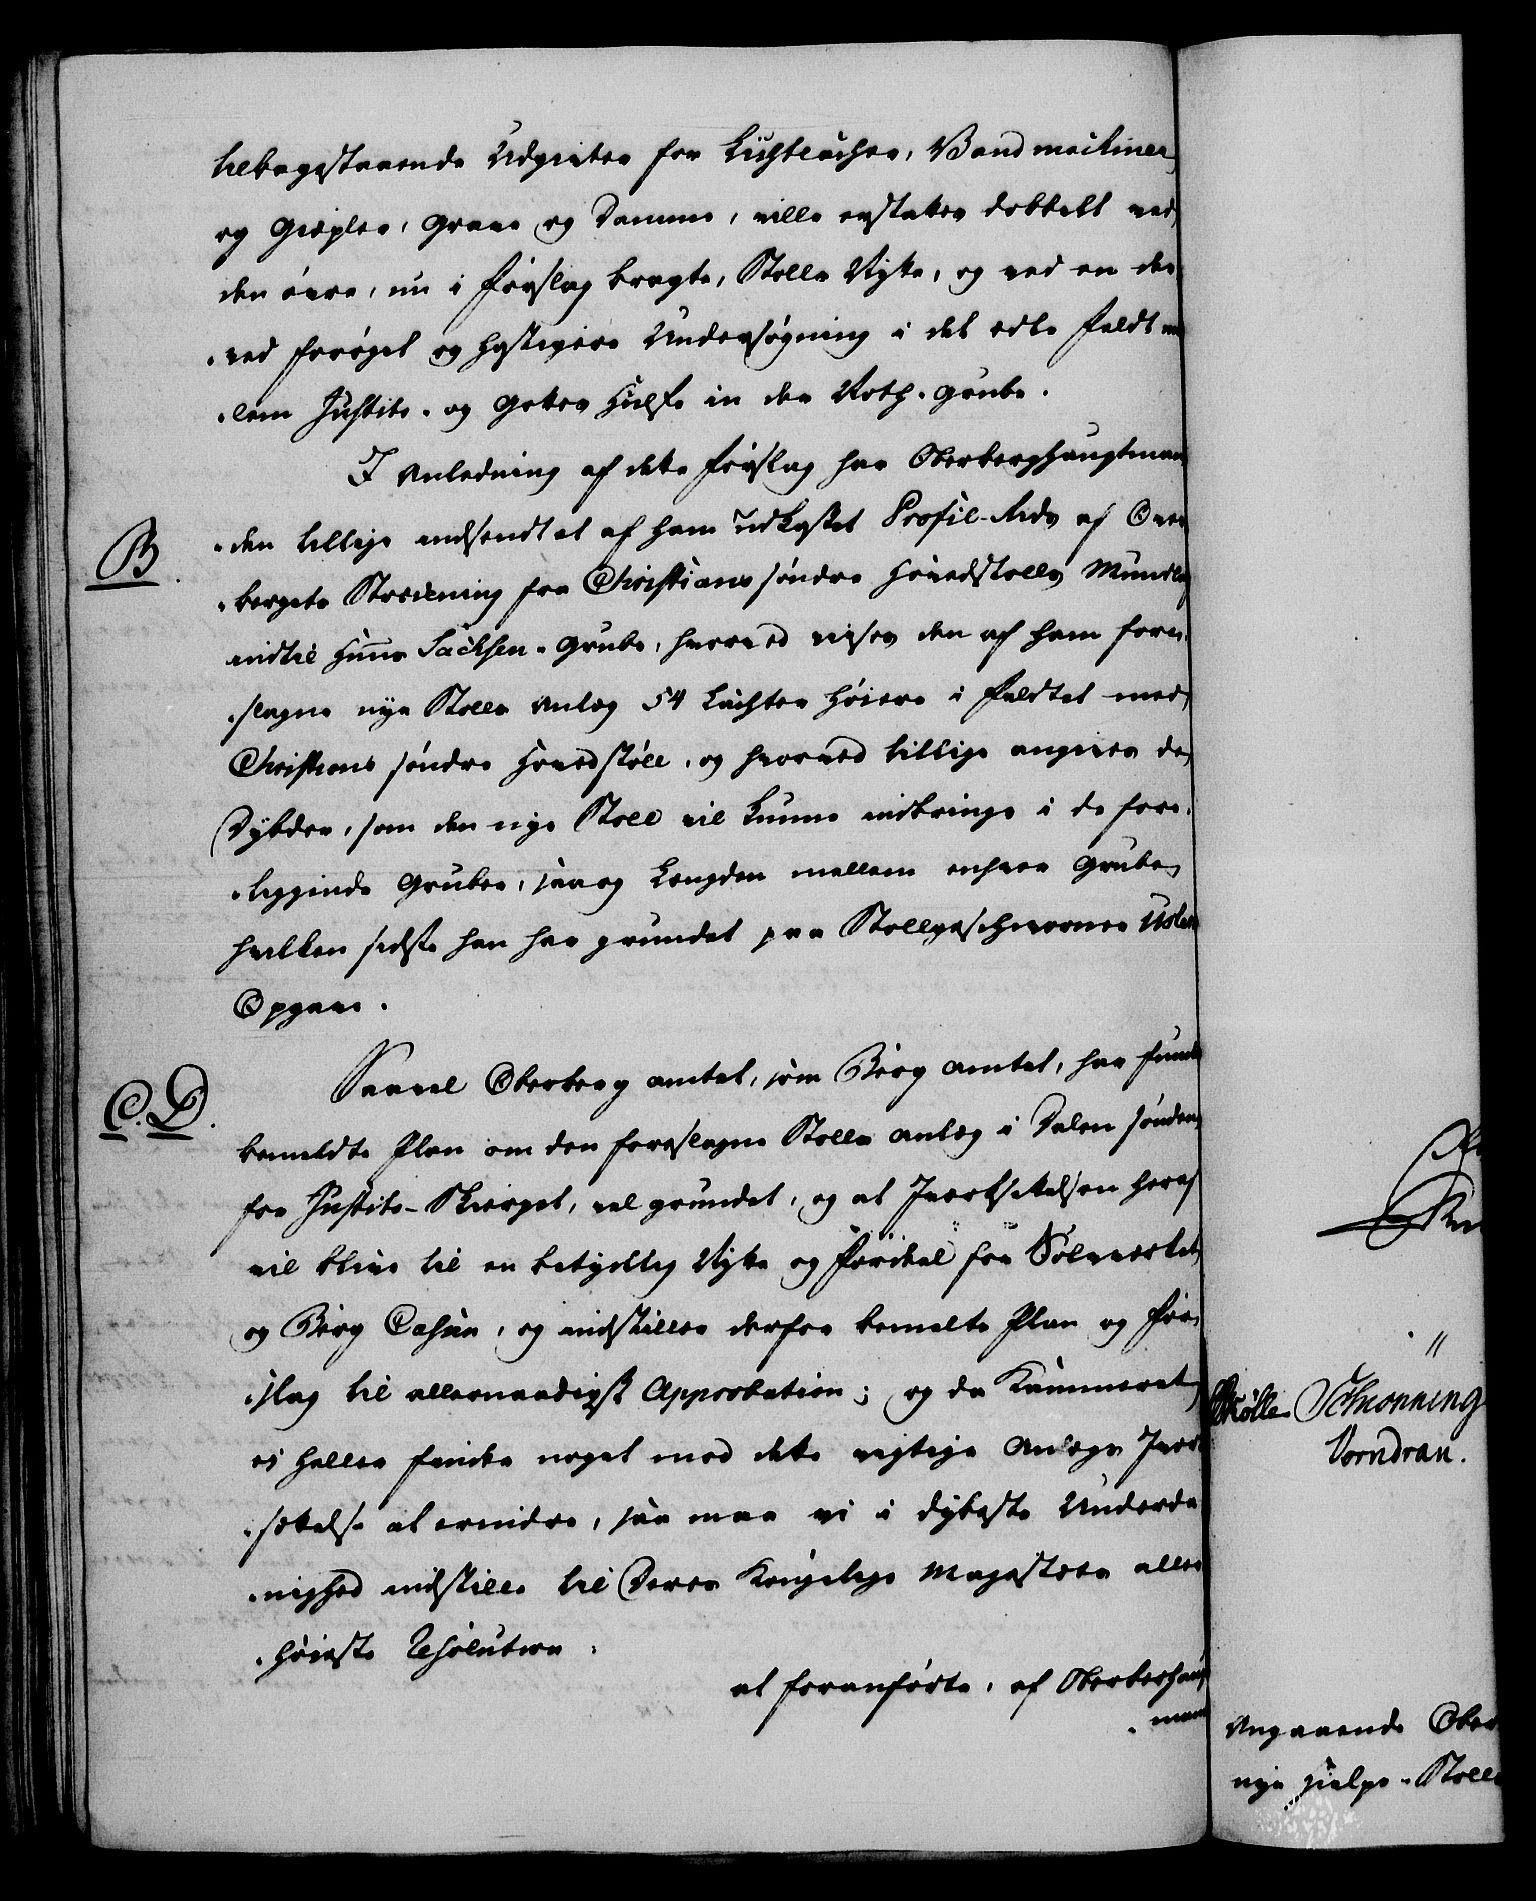 tilbagestaaende Udgivter for Lichtlöcher, Vandmaskiner
og Giepler, Grave og Damme, ville erstattes dobbelt ved
den övre, nu i Forslag bragte, Stolls Nytte, og ved en der
-ved forøget og hastigere Undersøgning i det ædle Feldt m
-lem Justits- og Gottes Hülfe in der Noth-Grube.
I Anledning af dette Forslag har Oberberghauptman
-den tillige indsendt et af ham udkastet Profil-Rids af Over
B.
-bergets Strækning fra Christians søndre Hovedstolls Mundlog
indtil Hans Sachsen-Grube, hvorved vises den af ham fore
-slagne nye Stolls Anlæg 54 Lachter høiere i Feldtet med
Christians søndre Hovedstoll, og hvorved tillige angives de
Dybder, som den nye Stoll vil kunne indbringe i de fore-
-liggende Gruber, saa og Længden mellem enhver Grube,
hvilken sidste han har grundet paa Stollgeschworner
Opgave.
Saavel Oberbergamtet, som Bergamtet, har funde
C. D.
bemeldte Plan om den foreslagne Stolls Anlæg i Dalen sønden
for Justits-Skierpet, vel grundet, og at Iværksættelsen heraf
vil blive til en betydelig Nytte og Fordeel for Sølvverket
og Berg Cassen, og indstiller derfor bemelte Plan og For-
-slag til allernaadigst Approbation; og da Kammeret
ei heller finder noget mod dette vigtige Anlægs Iværk
-sættelse at erindre, saa maa vi i dybeste Underda
-nighed indstille til Deres Kongelige Majestæts aller
-høieste Resolution.
at foranførte, af Oberberghaupt
-mand
Schmonning
Vorndran.
Angaaende Ober
nye Hielpe-Stoll